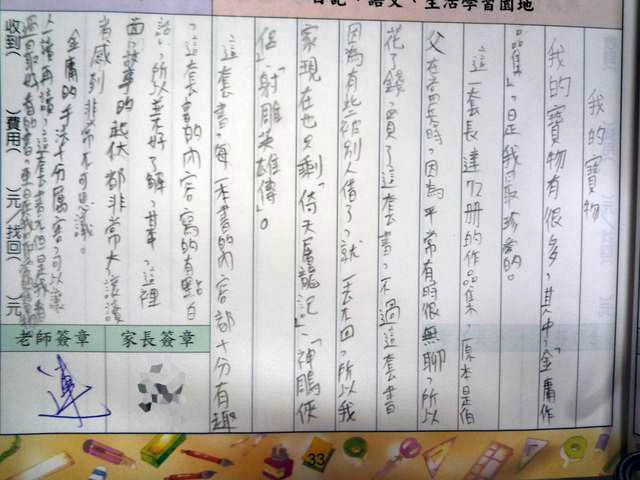 日記、語文、生活學習園地
我的寶物
我的寶物有很多，其中「金庸作
品集」，是我最珍愛的。
這一套長達72冊的作品集，原本是伯
父在當兵時，因為平常有的很無聊，所以
花了錢，買了這套書，不過這套書
因為有些被別人借了，就丟不回，所以我
家現在也只剩「倚天屠龍記」、「神鵰俠
侶」、「射雕英雄傳」。
這套書，每一本書的內容都十分有趣
，這套書的內容寫的有點白
話，所以並不難了解，甚事，這裡
面故事的起伏都非常大，讓讀
者感到非常不可思議。
金庸的手法十分厲害，可以讓
人一讀再讀，這套書
收到（ ）費用（ ）元／找回（ ）元
老師簽章
家長簽章
33